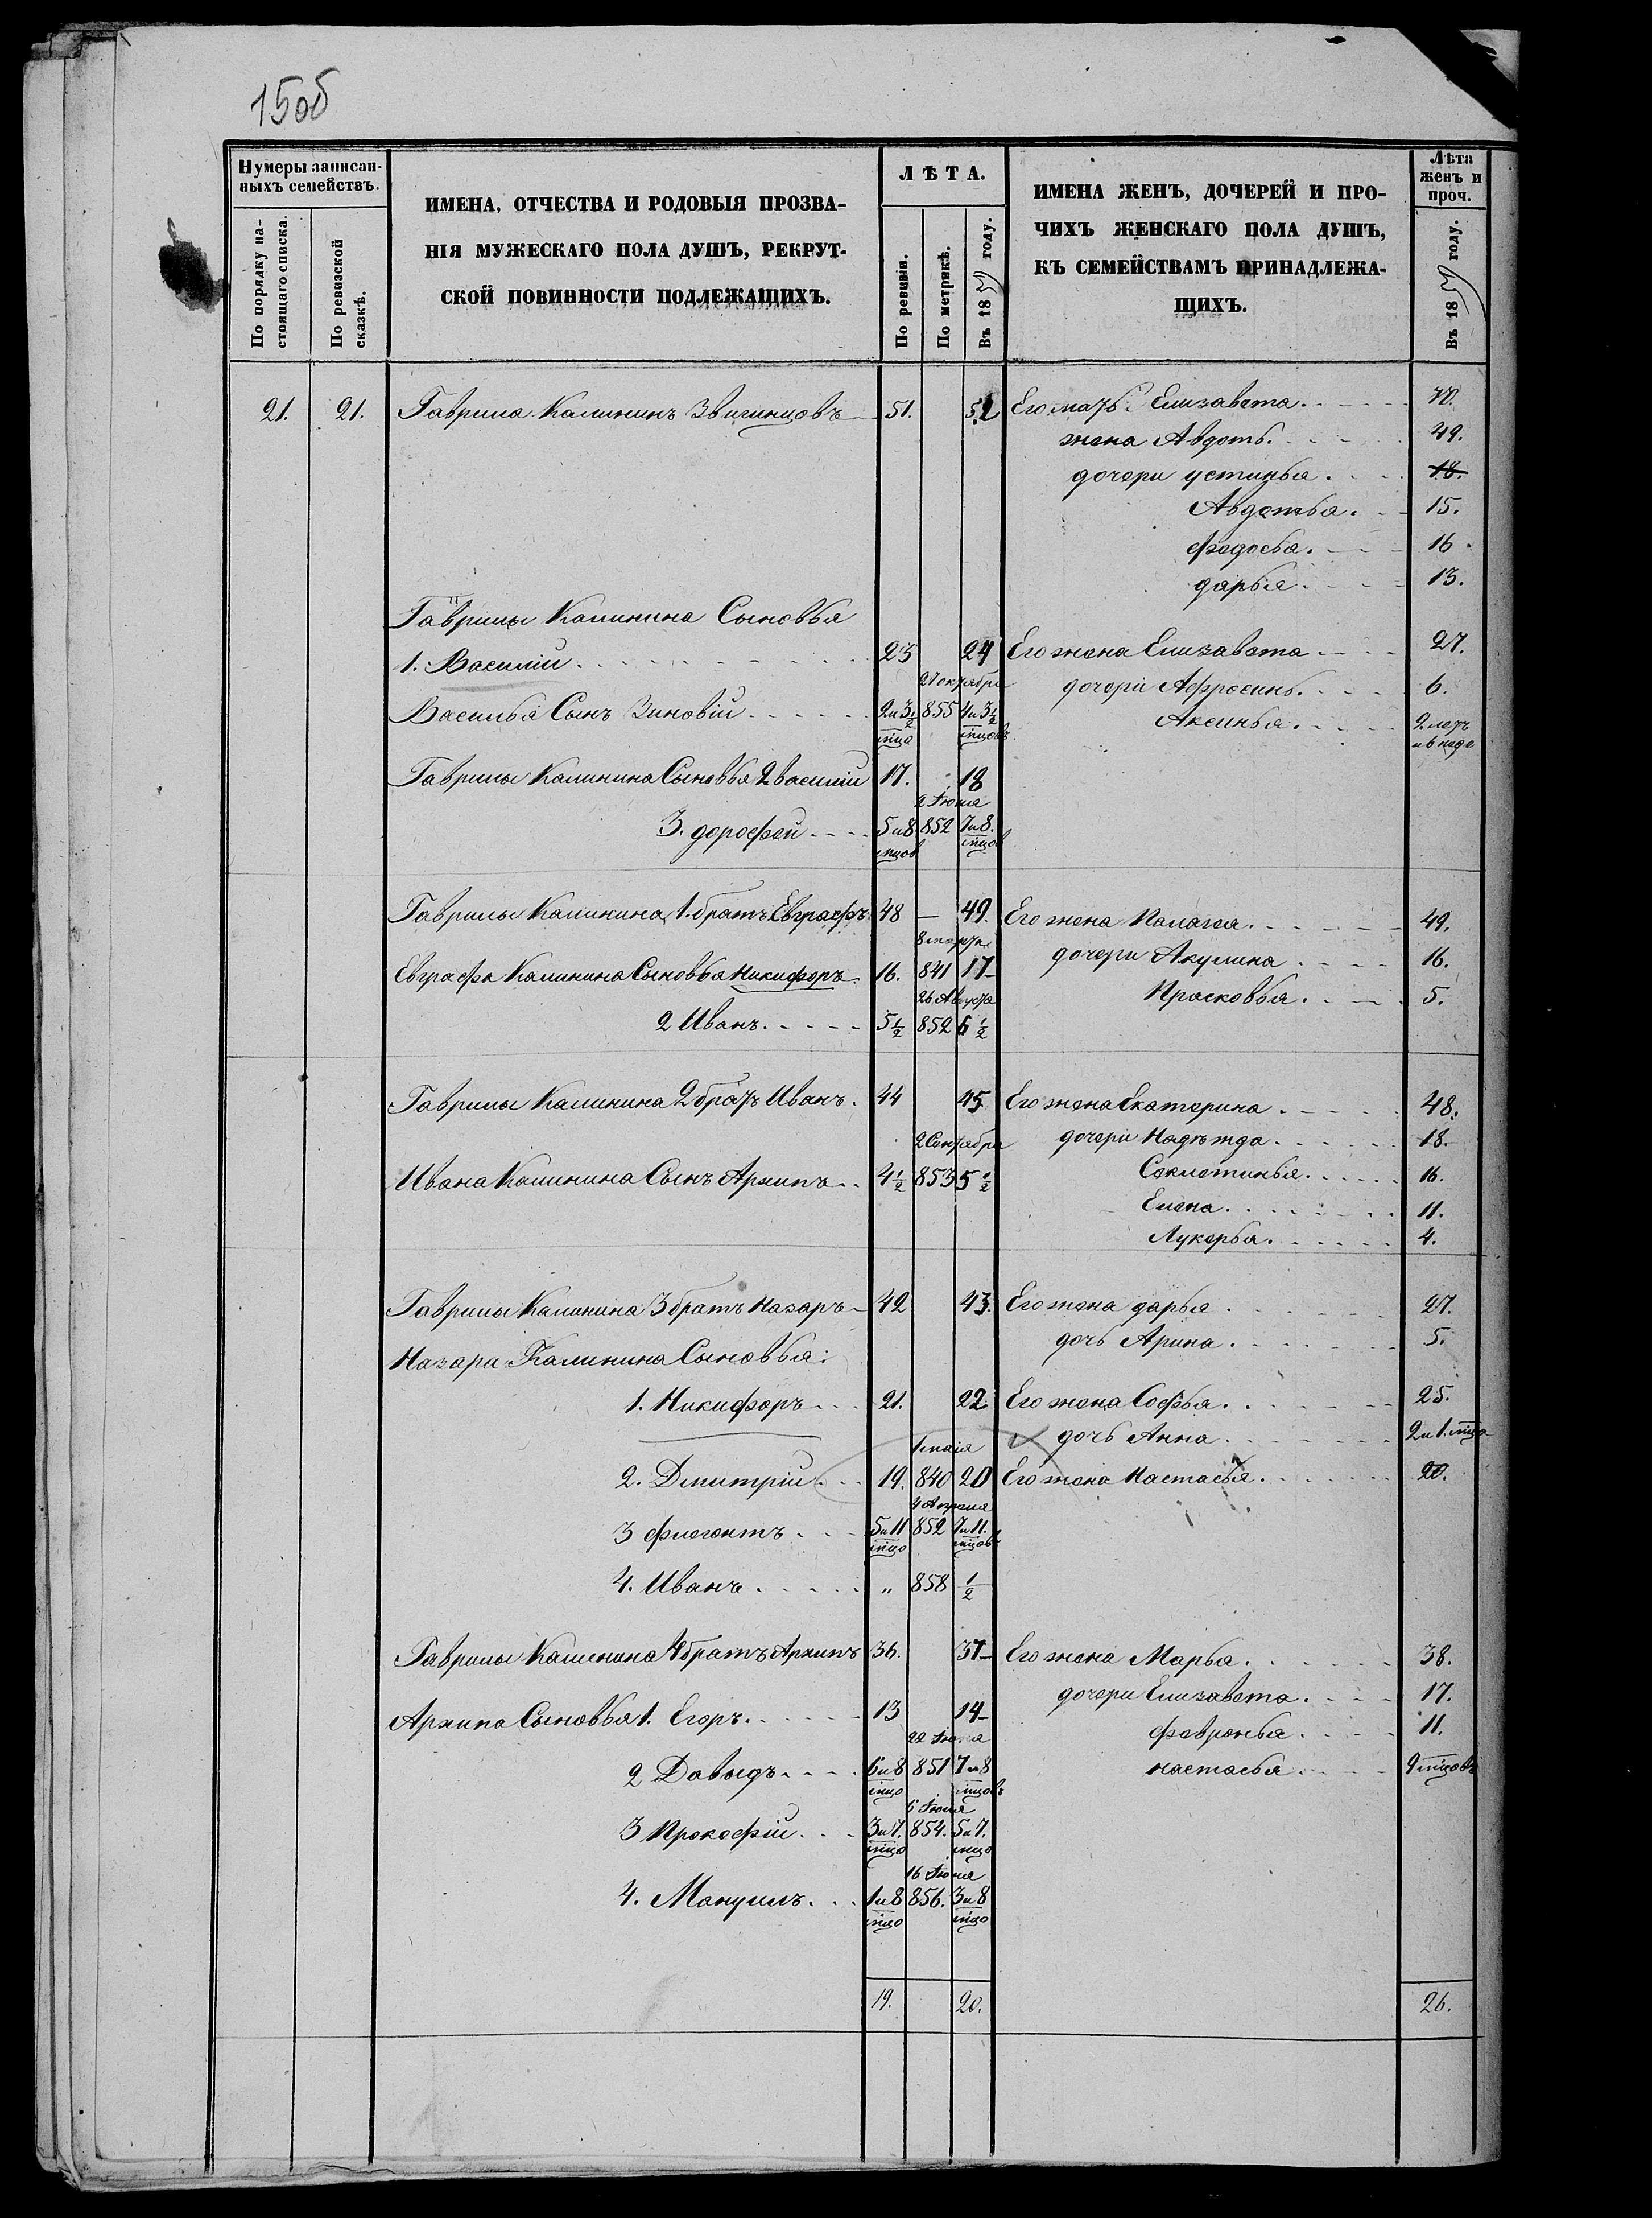 150б
Нумеры записан-
ныхъ семействъ.
По порядку на-
стоящаго списка.
По ревизской
сказкѣ.
ИМЕНА, ОТЧЕСТВА И РОДОВЫЯ ПРОЗВА-
НІЯ МУЖЕСКАГО ПОЛА ДУШЪ, РЕКРУТ-
СКОЙ ПОВИННОСТИ ПОДЛЕЖАЩИХЪ.
ЛѢТА.
По ревизіи.
По метрикѣ.
Въ 1859 году.
ИМЕНА ЖЕНЪ, ДОЧЕРЕЙ И ПРО-
ЧИХЪ ЖЕНСКАГО ПОЛА ДУШЪ,
КЪ СЕМЕЙСТВАМЪ ПРИНАДЛЕЖА-
ЩИХЪ.
Лѣта
женъ и
проч.
Въ 1859 году.
21. 21. Гаврила Калининъ Звигинцовъ 51. 52 Его мать Елизавета 70.
жена Авдоть. 49.
дочери устинья 18.
Авдотья. 15.
федосья. 16.
дарья 13.
Гаврилы Калинина Сыновья
1. Василіи 23 24 Его жена Елизавета 27.
27 октября
дочери Афросинь. 6.
Василья Сынъ Зиновіи 2 и 3½ мца 855 4 и 3½ мцовъ
Аксинья 2 летъ
и 6 неде
Гаврилы Калинина Сыновья 2 василіи 17. 18
2 Июня
3. дорофеи 5 и 8 мцов 852 7 и 8. мцов
Гаврилы Калинина 1. братъ Евграфъ 48 — 49. Его жена Палагея 49.
8 марта
дочери Акулина 16.
Евграфа Калинина Сыновья Никифоръ 16. 841 17
26 Августа
Прасковья 5.
2 Иванъ 5½ 852 6½
Гаврилы Калинина 2 братъ Иванъ. 44 45 Его жена Екатерина 48.
2 Сентября
дочери Надѣжда 18.
Ивана Калинина Сынъ Архипъ 4½ 853 5½
Секлетинья 16.
Елена 11.
Лукерья 4.
Гаврилы Калинина 3 братъ Назаръ 42 43. Его жена дарья 27.
дочь Арина 5.
Назара Калинина Сыновья:
1. Никифоръ 21. 22 Его жена Софья 25.
дочь Анна 2 и 1. мца
1 маія
2. Дмитріи 19. 840 20 Его жена Настасья 20.
4 Апреля
3 флегонтъ 5 и 11 мцо 852 7 и 11. мцовъ
4. Иванъ „ 858 ½
Гаврилы Калинина 4 братъ Архипъ 36. 37 Его жена Марья 38.
дочери Елизавета 17.
Архипа Сыновья 1. Егоръ 13 14
февронья 11.
2 Давыдъ 6 и 8 мцо 851 7 и 8 мцовъ
настасья 9 мцовъ
6 Июля
3 Прокофіи 3 и 7. мцо 854. 5 и 7. мцо
16 Июня
4. Мануилъ 1 и 8 мцо 856. 3 и 8 мцо
19. 20. 26.